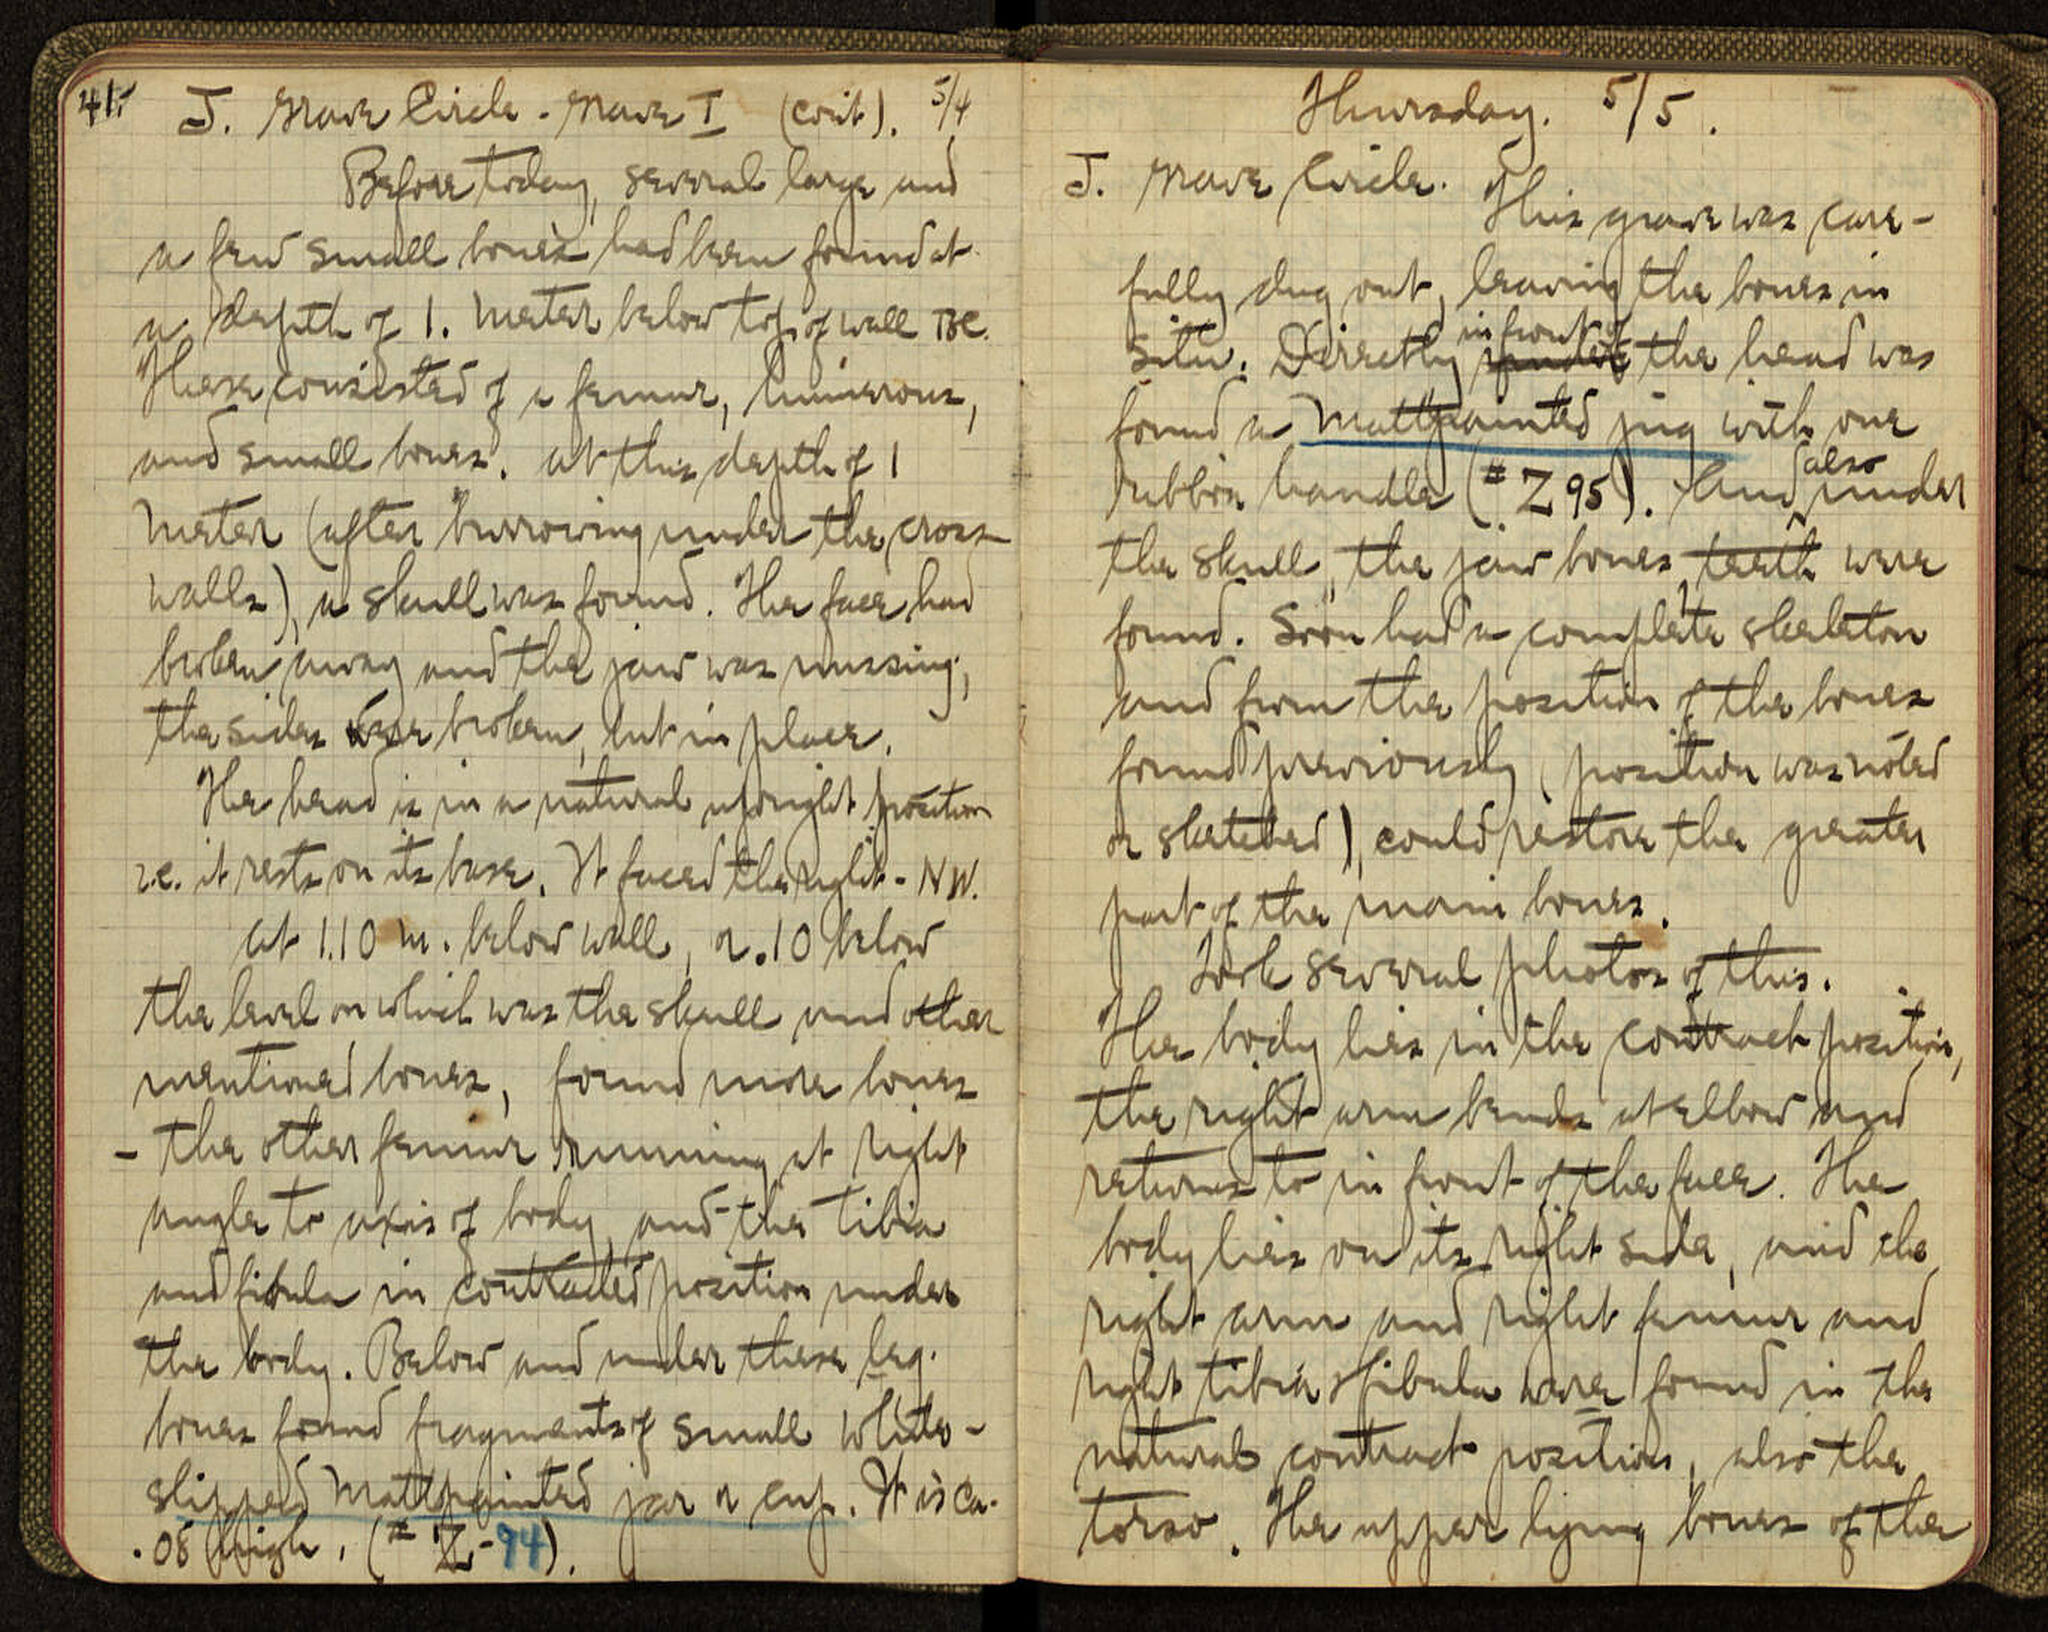 41.
J. Grave Circle - Grave I (cont). 5/4
Before today, several large and
a few small bones had been found at
a depth of 1. meter below top of wall BC.
These consisted of a femur, humerous,
and small bones. At this depth of 1
meter (after burrowing under the cross
walls), a skull was found. The face had
broken away and the jaw was missing;
the sides were broken, but in place.
The head is in a natural upright position
i.e. it rests on its base. It faced the right - NW.
At 1.10 m. below wall, or .10 below
the level on which was the skull and other
mentioned bones, found more bones
- the other femur running at right
angle to axis of body, and the tibia
and fibula in contracted position under
the body. Below and under these leg
bones found fragments of small white-
slipped Mattpainted jar or cup. It is ca.
.08 high. (# Z-94).
Thursday. 5/5.
J. Grave Circle. This grave was care-
fully dug out, leaving the bones in
situ. Directly under in front of the head was
found a Mattpainted jug with one
ribbon handle (# Z 95). And also under
the skull, the jaw bones, teeth were
found. Soon had a complete skeleton
and from the position of the bones
found previously (position was noted
or sketched), could restore the greater
part of the main bones.
Took several photos of this.
The body lies in the contract position,
the right arm bends at elbow and
returns to in front of the face. The
body lies on its right side, and the
right arm and right femur and
right tibia & fibula were found in the
natural contract position, also the
torso. The upper lying bones of the